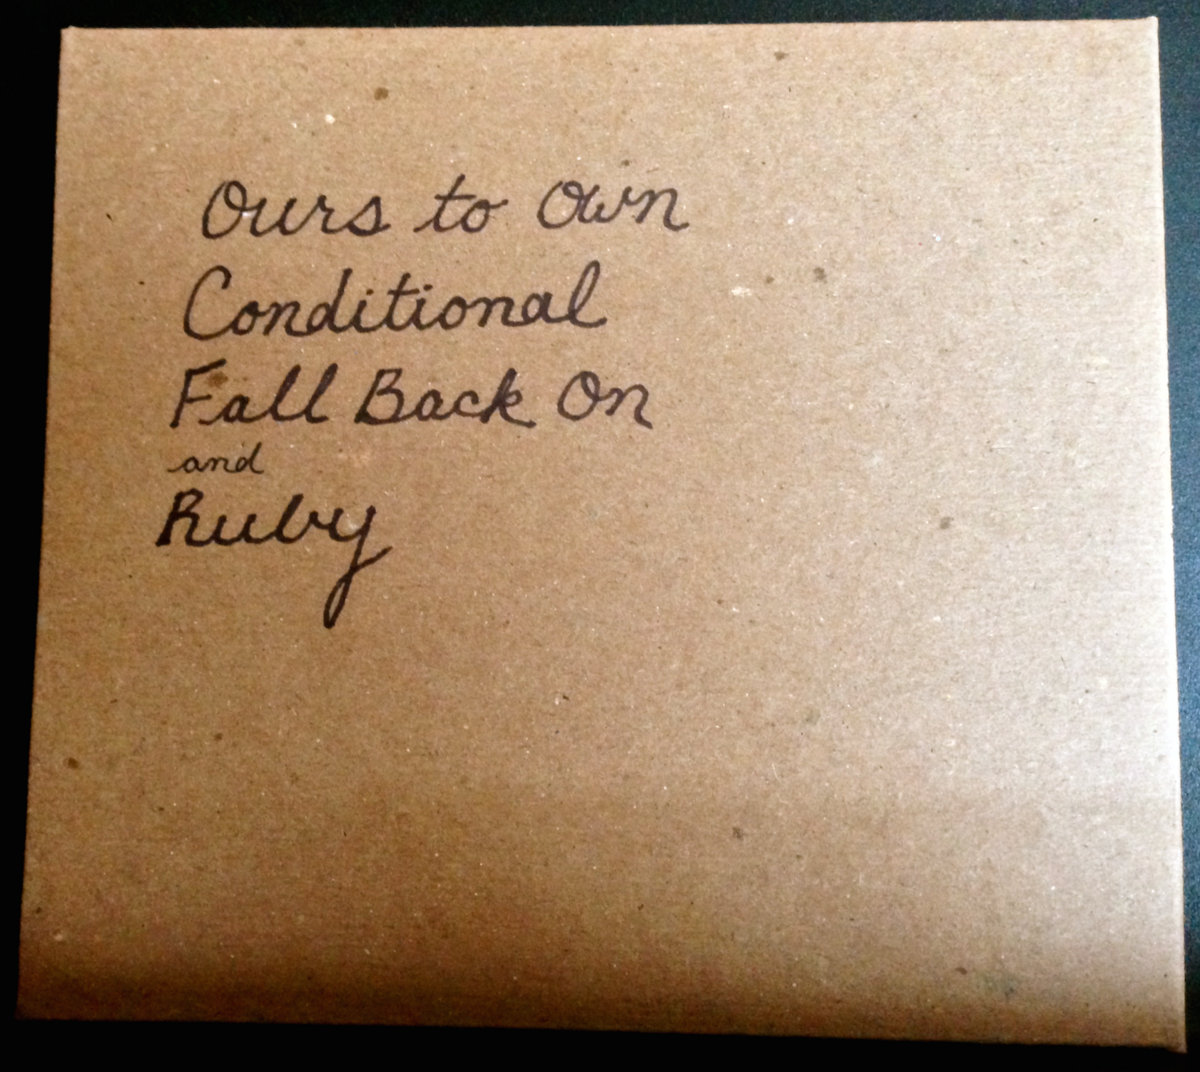 Ours to Own
Conditional
Fall Back On
and
Ruby